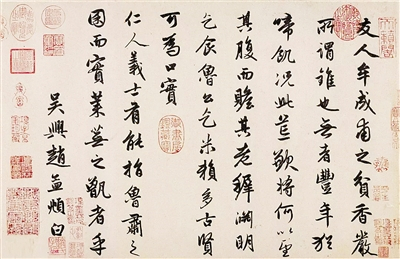 友人牟成甫之貧香嚴
所謂錐也無者豐年猶
啼飢況此荒歉將何以望
其腹而贍其老穉淵明
乞食魯公乞米賴多古賢
可為口實
仁人義士有能指魯肅之
囷而實萊蕪之甑者乎
吳興趙孟頫白